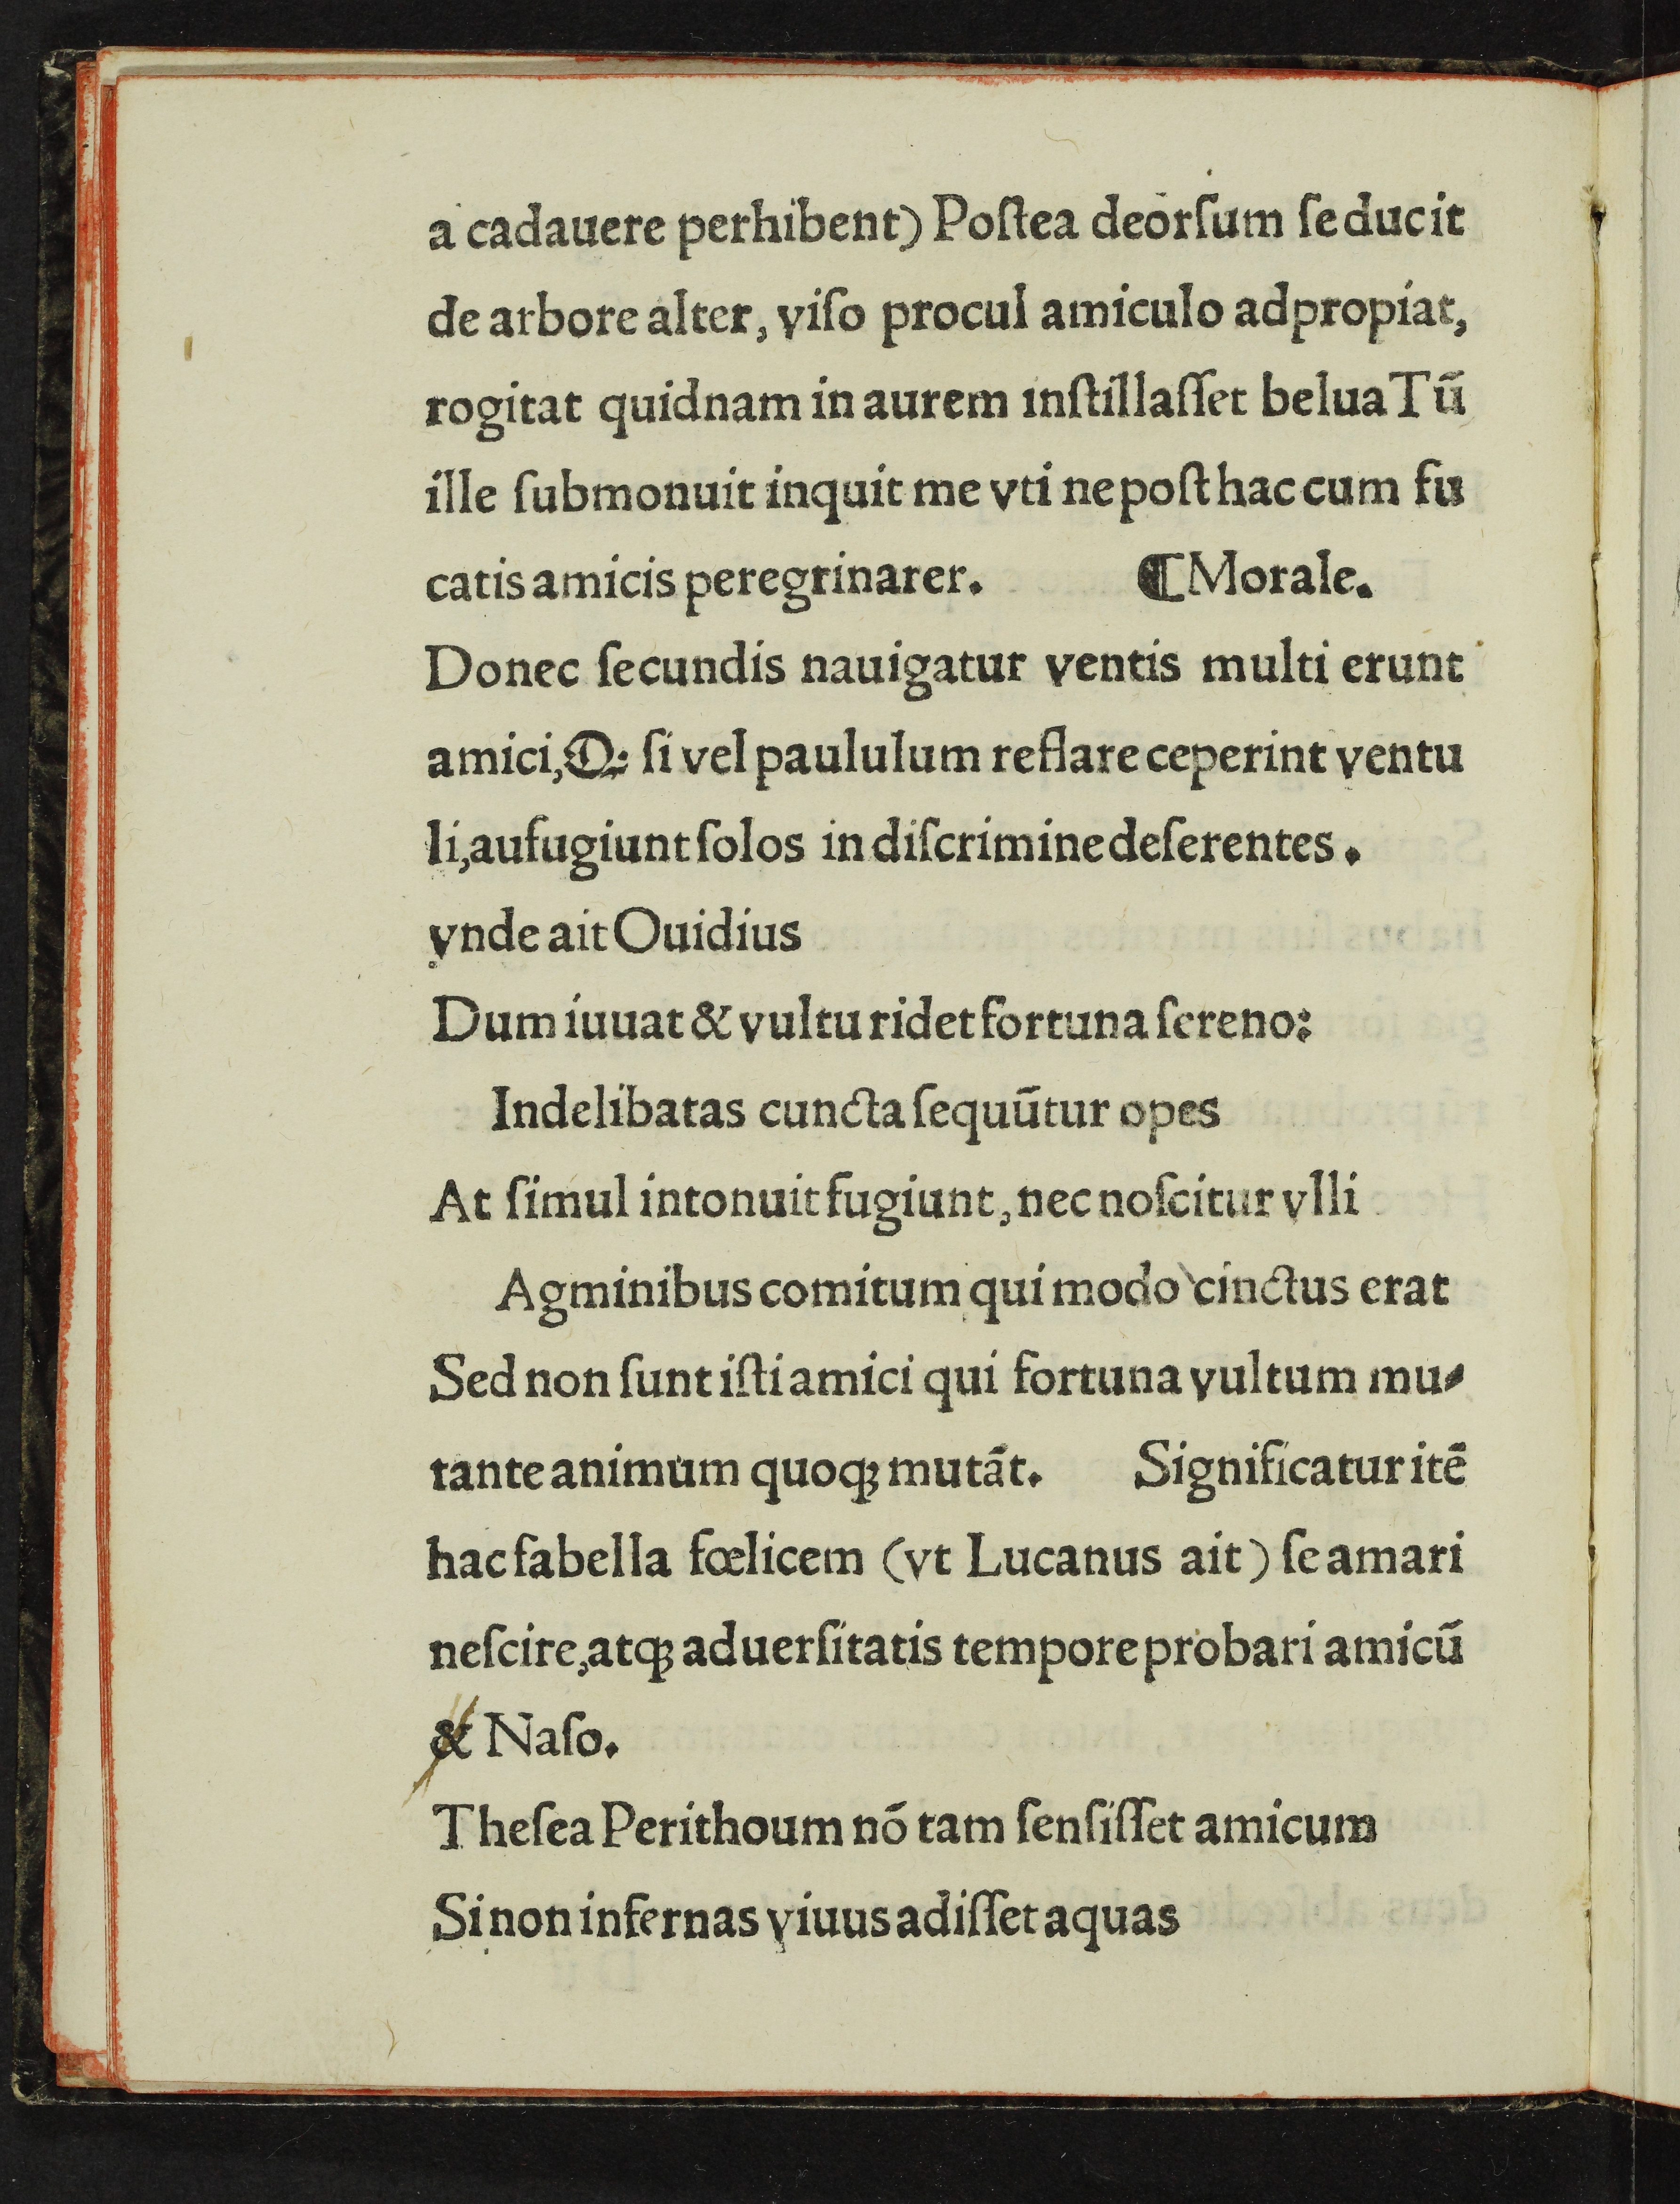 a cadauere perhibent) Poſtea deorſum ſe ducit
de arbore alter, viſo procul amiculo adpropiat,
rogitat quidnam in aurem inſtillaſſet belua Tū
ille ſubmonuit inquit me vti ne poſt hac cum fu
catis amicis peregrinarer. ⸿ Morale.
Donec ſecundis nauigatur ventis multi erunt
amici, Q: ſi vel paululum reflare ceperint ventu
li, aufugiunt ſolos in diſcrimine deſerentes.
vnde ait Ouidius
Dum iuuat & vultu ridet fortuna ſereno:
Indelibatas cuncta ſequūtur opes
At ſimul intonuit fugiunt, nec noſcitur vlli
Agminibus comitum qui modo cinctus erat
Sed non ſunt iſti amici qui fortuna vultum mu⸗
tante animum quoqꝫ mutāt. Significatur itē
hac fabella fœlicem (vt Lucanus ait) ſe amari
neſcire, atqꝫ aduerſitatis tempore probari amicū
& Naſo.
Theſea Perithoum nō tam ſenſiſſet amicum
Si non infernas viuus adiſſet aquas